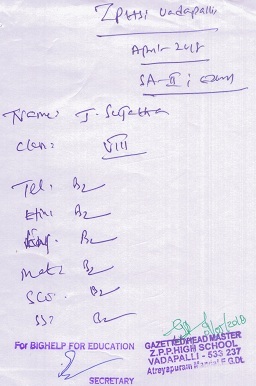 ZPHS Vadapalli
April-2018
SA-II ; exam
Name: J. Sujatha
class: VIII
Tel: B2
Hin: B2
Eng: B2
Mat: B2
SCI: B2
SS: B2
For BIGHELP FOR EDUCATION
SECRETARY
GAZETTED HEAD MASTER
Z.P.P.HIGH SCHOOL
VADAPALLI - 533 237
Atreyapuram Mandal E.G.Dt.